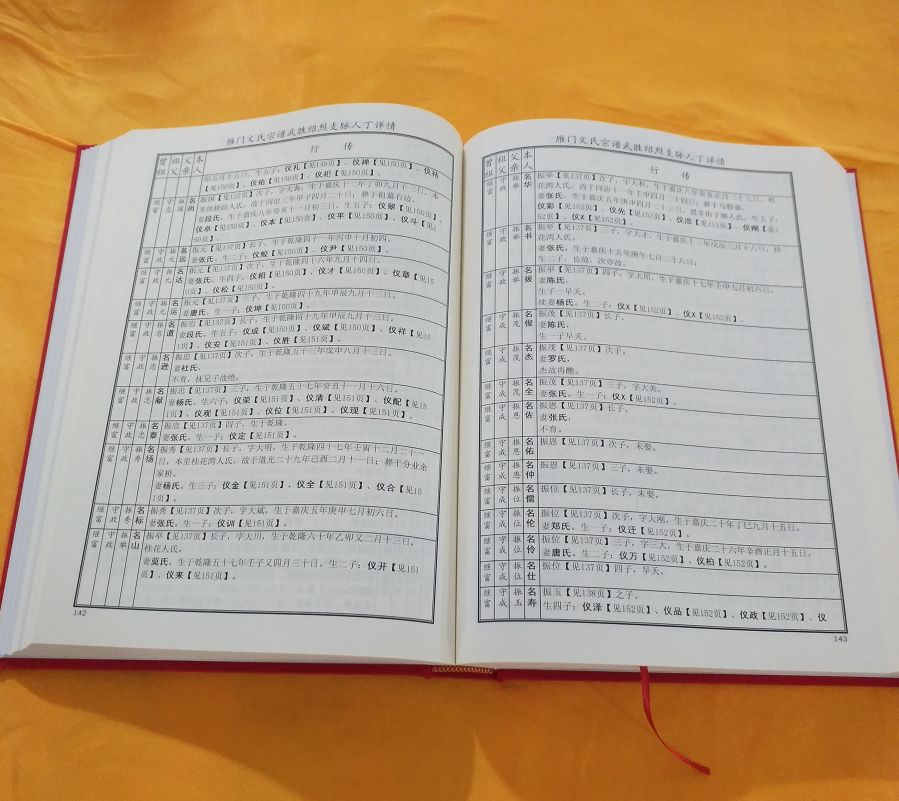 雁门文氏宗谱武胜绍烈支脉人丁详情
曾祖 祖父 父亲 本人 行 传
年五月十五日。生五子：仪礼【见149页】、仪禅【见150页】、仪祜
【见150页】、仪佑【见150页】、仪祀【见150页】。
继富 守政 振国 名尚 振国【见137页】次子，字大燕，生于嘉庆十二年丁卯九月十三日，本
里铁桥院人氏，故于同治三年甲子四月二日；葬于祖墓右边。
妻段氏，生于嘉庆八年癸亥十一月初三日。生五子：仪翠【见150页】、
仪卓【见150页】、仪本【见150页】、仪平【见150页】、仪斗【见1
50页】。
继富 守政 振元 名远 振元【见137页】长子，生于乾隆四十一年丙申十月初四。
妻张氏。生二子：仪殿【见150页】、仪尹【见150页】。
继富 守政 振元 名达 振元【见137页】次子，生于乾隆四十六年九月十四日。
妻张氏。生四子：仪相【见150页】、仪才【见150页】、仪章【见15
0页】、仪松【见150页】。
继富 守政 振元 名运 振元【见137页】三子，生于乾隆四十九年甲辰九月十三日。
妻唐氏。生一子：仪坤【见150页】。
继富 守政 振忠 名道 振忠【见137页】长子，生于乾隆四十九年甲辰九月十三日。
妻段氏。生五子：仪成【见150页】、仪斌【见150页】、仪祥【见15
1页】、仪安【见151页】、仪胜【见151页】。
继富 守政 振忠 名逊 振忠【见137页】次子，生于乾隆五十三年戊申八月十三日。
妻杜氏。
不育，抚兄子故绝。
继富 守政 振忠 名献 振忠【见137页】三子，生于乾隆五十七年癸丑十一月十六日。
妻杨氏。生六子：仪荣【见151页】、仪清【见151页】、仪配【见15
1页】、仪观【见151页】、仪位【见151页】、仪现【见151页】。
继富 守政 振忠 名泰 振忠【见137页】四子，生于乾隆。
妻张氏。生一子：仪定【见151页】。
继富 守政 振秀 名扬 振秀【见137页】长子，字大勇，生于乾隆四十七年壬寅十二月二十一
日，本里桂花湾人氏，故于道光二十九年己酉二月十一日；葬于分业余
家桥。
妻杨氏。生三子：仪金【见151页】、仪全【见151页】、仪合【见15
1页】。
继富 守政 振秀 名标 振秀【见137页】次子，字大斌，生于嘉庆五年庚申七月初六日。
妻张氏。生一子：仪训【见151页】。
继富 守政 振举 名山 振举【见137页】长子，字大川，生于乾隆六十年乙卯又二月十三日，
桂花人氏。
妻莫氏，生于乾隆五十七年壬子又四月三十日。生二子：仪开【见151
页】、仪来【见151页】。
142
雁门文氏宗谱武胜绍烈支脉人丁详情
曾祖 祖父 父亲 本人 行 传
继富 守政 振举 名华 振举【见137页】次子，字大和，生于嘉庆八年癸亥正月二十七日，桂
花湾人氏，故于同治十一年壬申四月二十四日；葬于马鞍嘴。
妻张氏，生于嘉庆五年庚申四月二十三日，思里街子镇人氏。生五子：
仪彩【见152页】、仪先【见152页】、仪浩【见152页】、仪刚【见1
52页】、仪X【见152页】。
继富 守政 振举 名书 振举【见137页】三子，字大才，生于嘉庆十二年戊辰三月十六日，桂
花湾人氏。
妻张氏，生于嘉庆十五年庚午七月二十八日；
生二子，长故，次亦故。
继富 守政 振举 名拔 振举【见137页】四子，字大用，生于嘉庆十七年壬申七月初六日。
妻陈氏。
生子一早夭。
续妻杨氏。生二子：仪X【见152页】、仪X【见152页】。
继富 守成 振茂 名俊 振茂【见137页】长子。
妻陈氏。
生一子早夭。
继富 守成 振茂 名杰 振茂【见137页】次子。
妻罗氏。
杰故再醮。
继富 守成 振茂 名全 振茂【见137页】三子，字大美。
妻张氏。生一子：仪X【见152页】。
继富 守成 振恩 名佐 振恩【见137页】长子。
妻张氏。
不育。
继富 守成 振恩 名佑 振恩【见137页】次子，未娶。
继富 守成 振恩 名仲 振恩【见137页】三子，未娶。
继富 守成 振位 名儒 振位【见137页】长子，未娶。
继富 守成 振位 名伦 振位【见137页】次子，字大刚，生于嘉庆二十年丁巳九月十五日。
妻郑氏。生一子：仪迁【见152页】。
继富 守成 振位 名伶 振位【见137页】三子，字三大，生于嘉庆二十六年辛酉正月十五日。
妻唐氏。生二子：仪万【见152页】、仪柏【见152页】。
继富 守成 振位 名仕 振位【见137页】四子，早夭。
继富 守成 振玉 名寿 振玉【见138页】之子。
生四子：仪泽【见152页】、仪品【见152页】、仪政【见152页】、仪
143